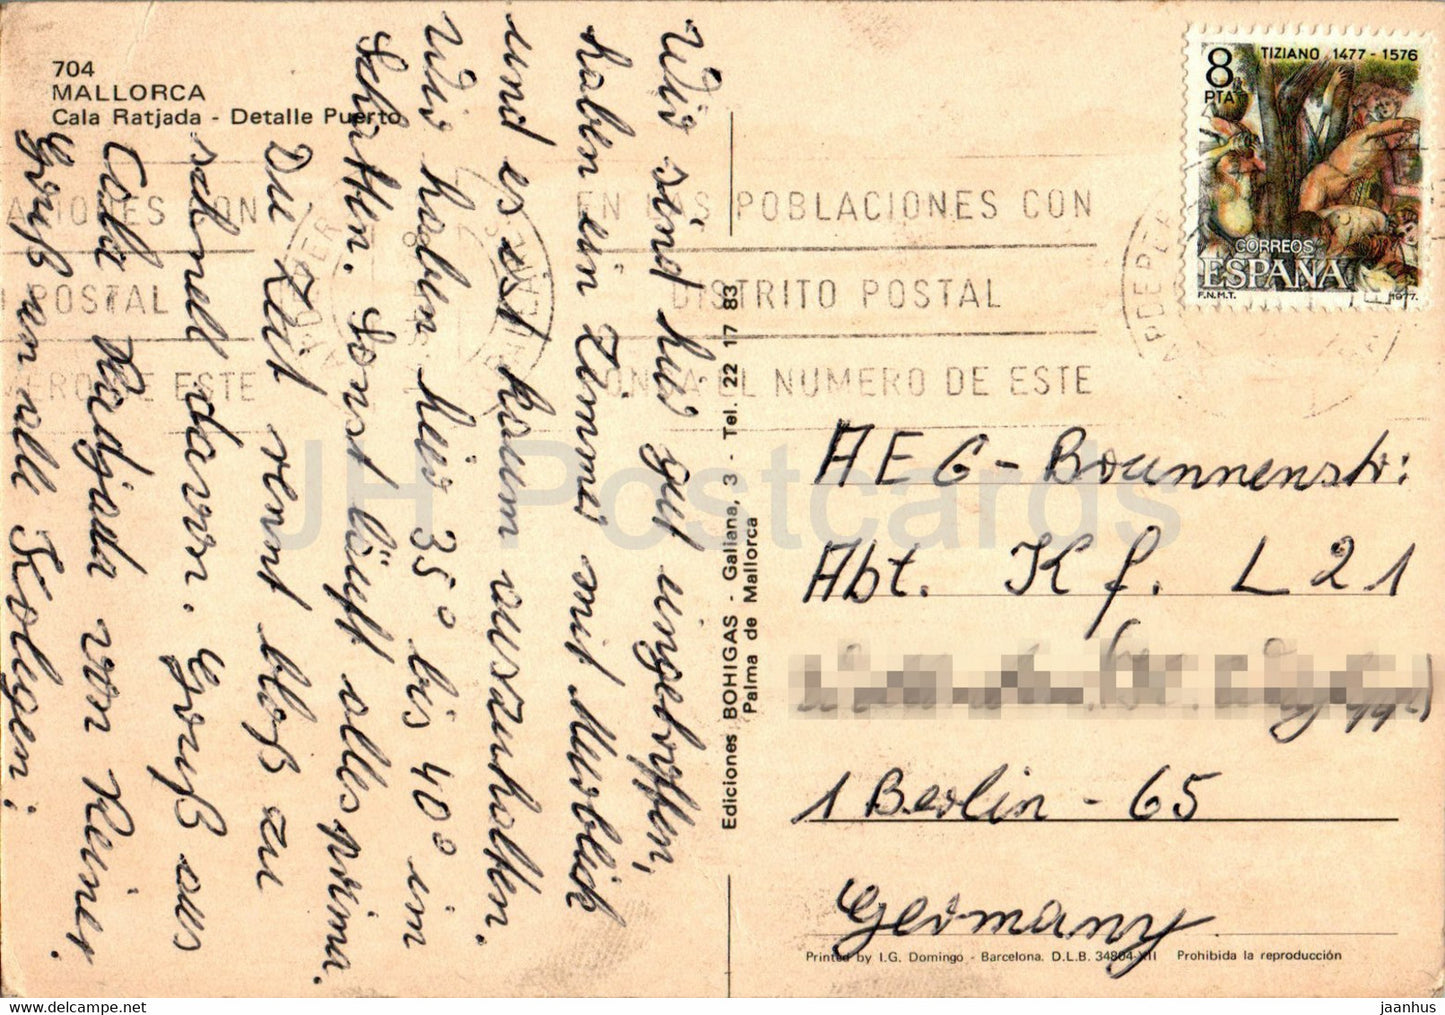 704
MALLORCA
Cala Ratjada - Detalle Puerto
Wir sind hier gut eingetroffen,
haben ein Zimmer mit Meerblick
und es ist kaum auszuhalten.
Wir haben hier 35° bis 40° im
Schatten. Sonst läuft alles prima.
Die Zeit rennt bloß zu
schnell davon. Gruß aus
Cala Radjada von Reiner.
Gruß an alle Kolegen!
Ediciones BOHIGAS - Galiana, 3 - Tel. 22 17 83
Palma de Mallorca
8
PTA
TIZIANO 1477 - 1576
CORREOS
ESPAÑA
F.N.M.T. 1977.
EN LAS POBLACIONES CON
DISTRITO POSTAL
PONGA EL NUMERO DE ESTE
AEG - Brunnenstr.
Abt. K f. L 21
1 Berlin - 65
Germany
Printed by I.G. Domingo - Barcelona. D.L.B. 34804-XII Prohibida la reproducción
JH Postcards
www.delcampe.net
jaanhus